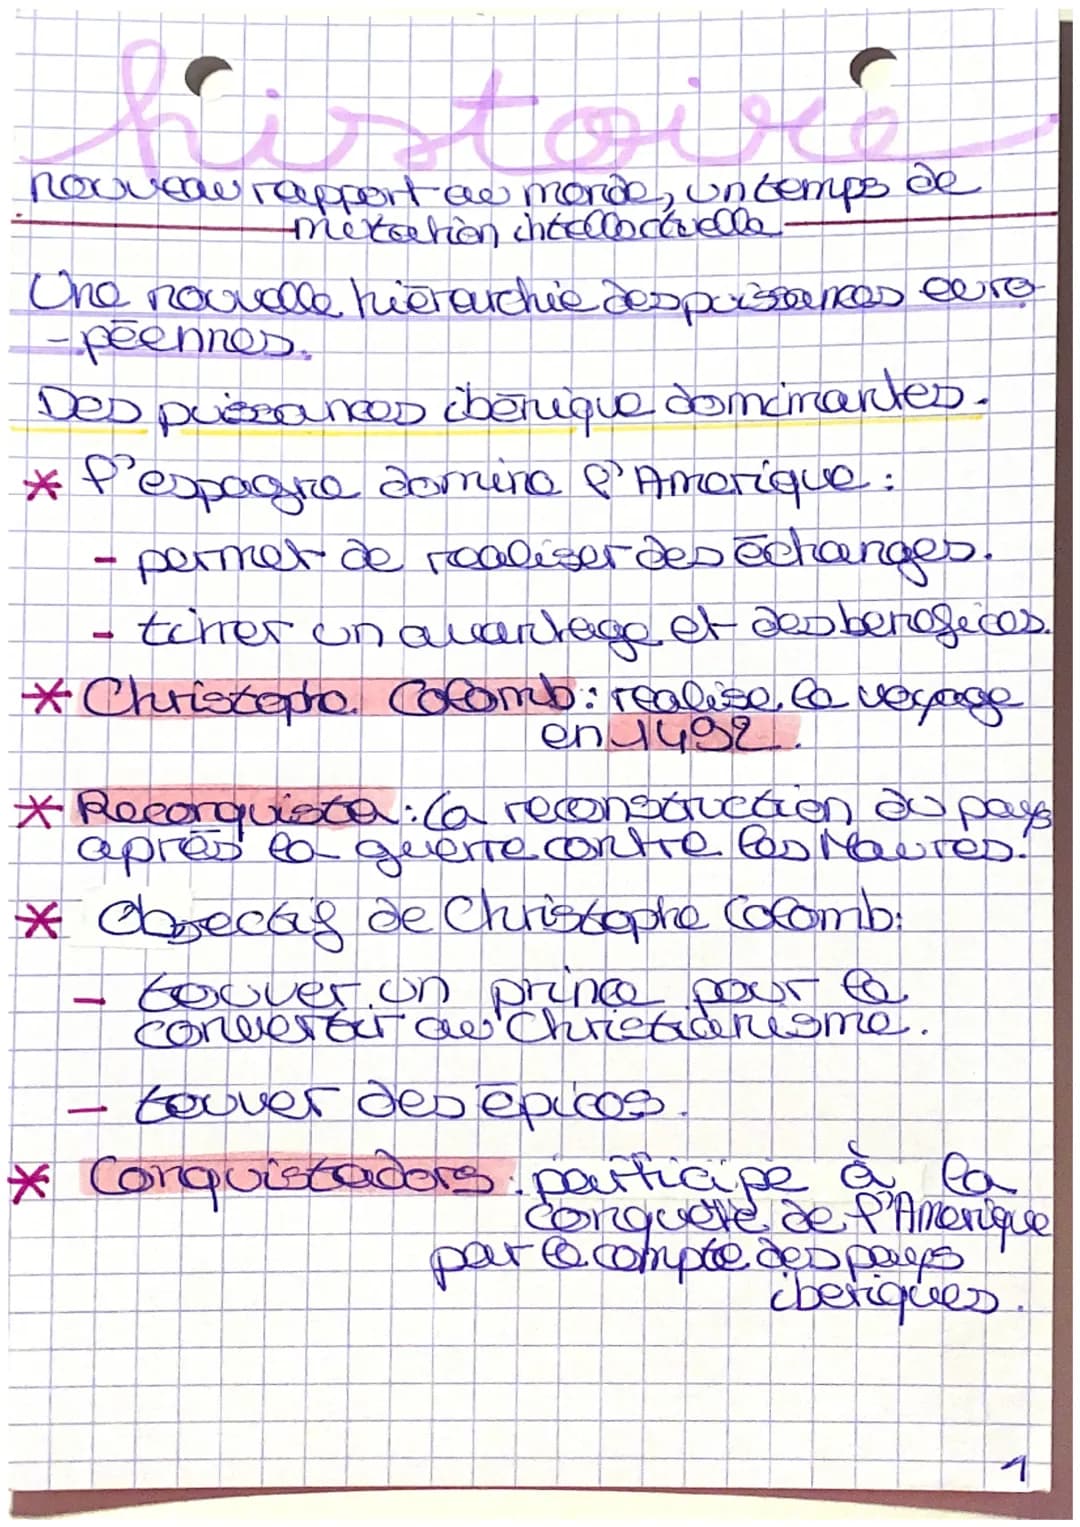 histoire
nouveau rapport au monde, un temps de
mutation intellectuelle
Une nouvelle hiérarchie des puissances euro
-péennes.
Des puissances ibérique dominantes.
* l'espagne domine l'Amerique :
- permet de realiser des échanges.
- tirrer un avantage et des benefices.
* Christophe Colomb : realise le voyage
en 1492.
* Reconquista : la reconstruction du pays
après la guerre contre les Maures.
* Objectif de Christophe Colomb:
- touver un prince pour le
convertir au Christianisme.
- touver des épices.
* Conquistadors : participe à la
conquete de l'Amerique
par le compte des pays
iberiques.
1